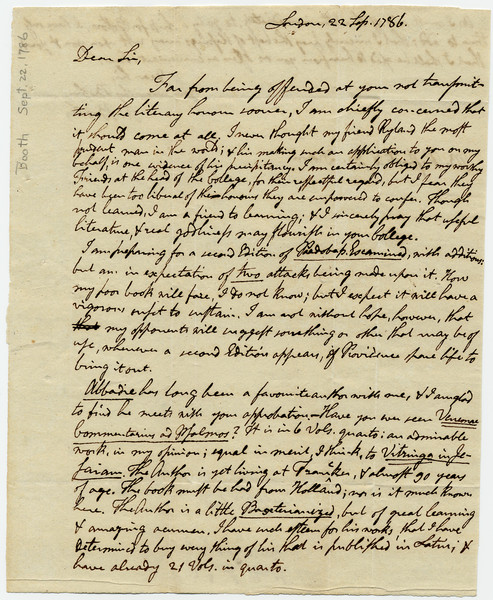 London, 22 Sep. 1786.
Booth Sept. 22, 1786
Dear Sir,
Far from being offended at your not transmit-
ting the literary honour sooner, I am chiefly concerned that
it should come at all. I never thought my friend Ryland the most
prudent man in the world; & his making such an application to you on my
behalf, is one evidence of his precipitancy. I am certainly obliged to my worthy
Friends, at the head of the College, for their respectful regard, but I fear they
have been too liberal of the honours they are empowered to confer. Though
not learned, I am a friend to learning; & I sincerely pray that useful
literature & real godliness may flourish in your College.
I am preparing for a second Edition of Pædobap. Examined, with additions;
but am in expectation of two attacks being made upon it. How
my poor book will fare, I do not know; but I expect it will have a
vigorous onset to sustain. I am not without hope, however, that
my opponents will suggest something or other that may be of
use, whenever a second Edition appears, if Providence spare life to
bring it out.
Abbadie has long been a favourite author with me, & I am glad
to find he meets with your approbation. Have you ever seen Venemæ
Commentarius ad Psalmos? It is in 6 Vols. quarto; an admirable
work, in my opinion; equal in merit, I think, to Vitringa in Je-
saiam. The Author is yet living at Franeker, & almost 90 years
of age. The book must be had from Holland; nor is it much known
here. The Author is a little, but of great learning
& amazing acumen. I have such esteem for his works, that I have
determined to buy every thing of his that is published in Latin; &
have already 21 Vols. in quarto.